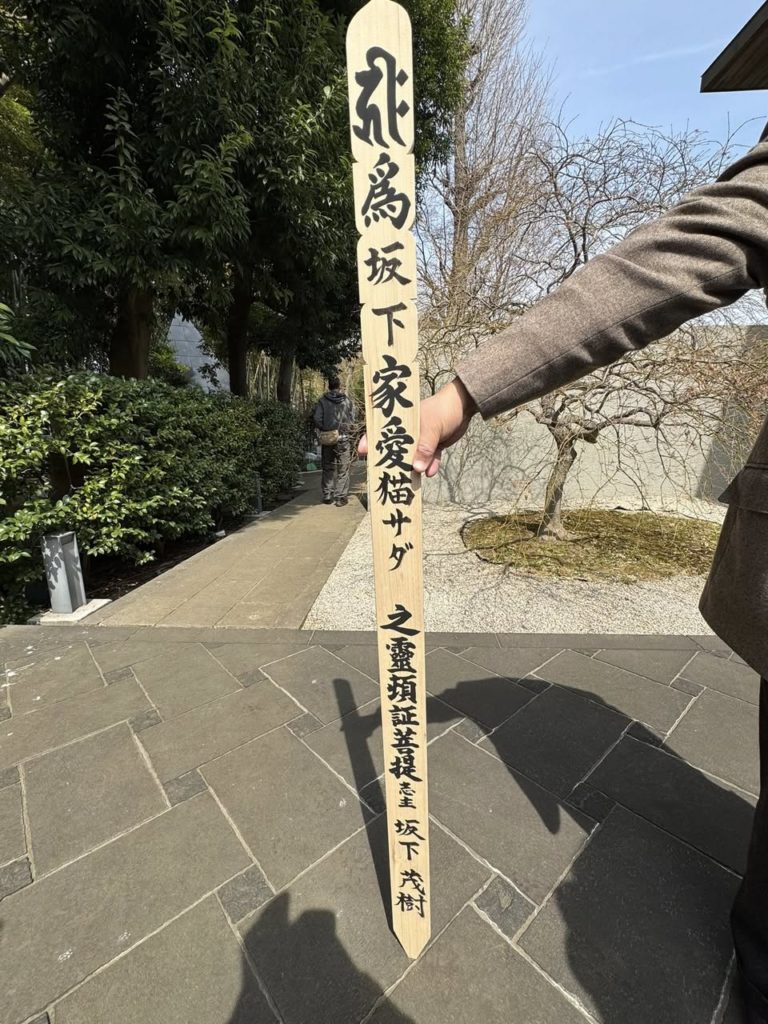 爲坂下家愛猫サダ 之靈頓証菩提 志主 坂下 茂樹